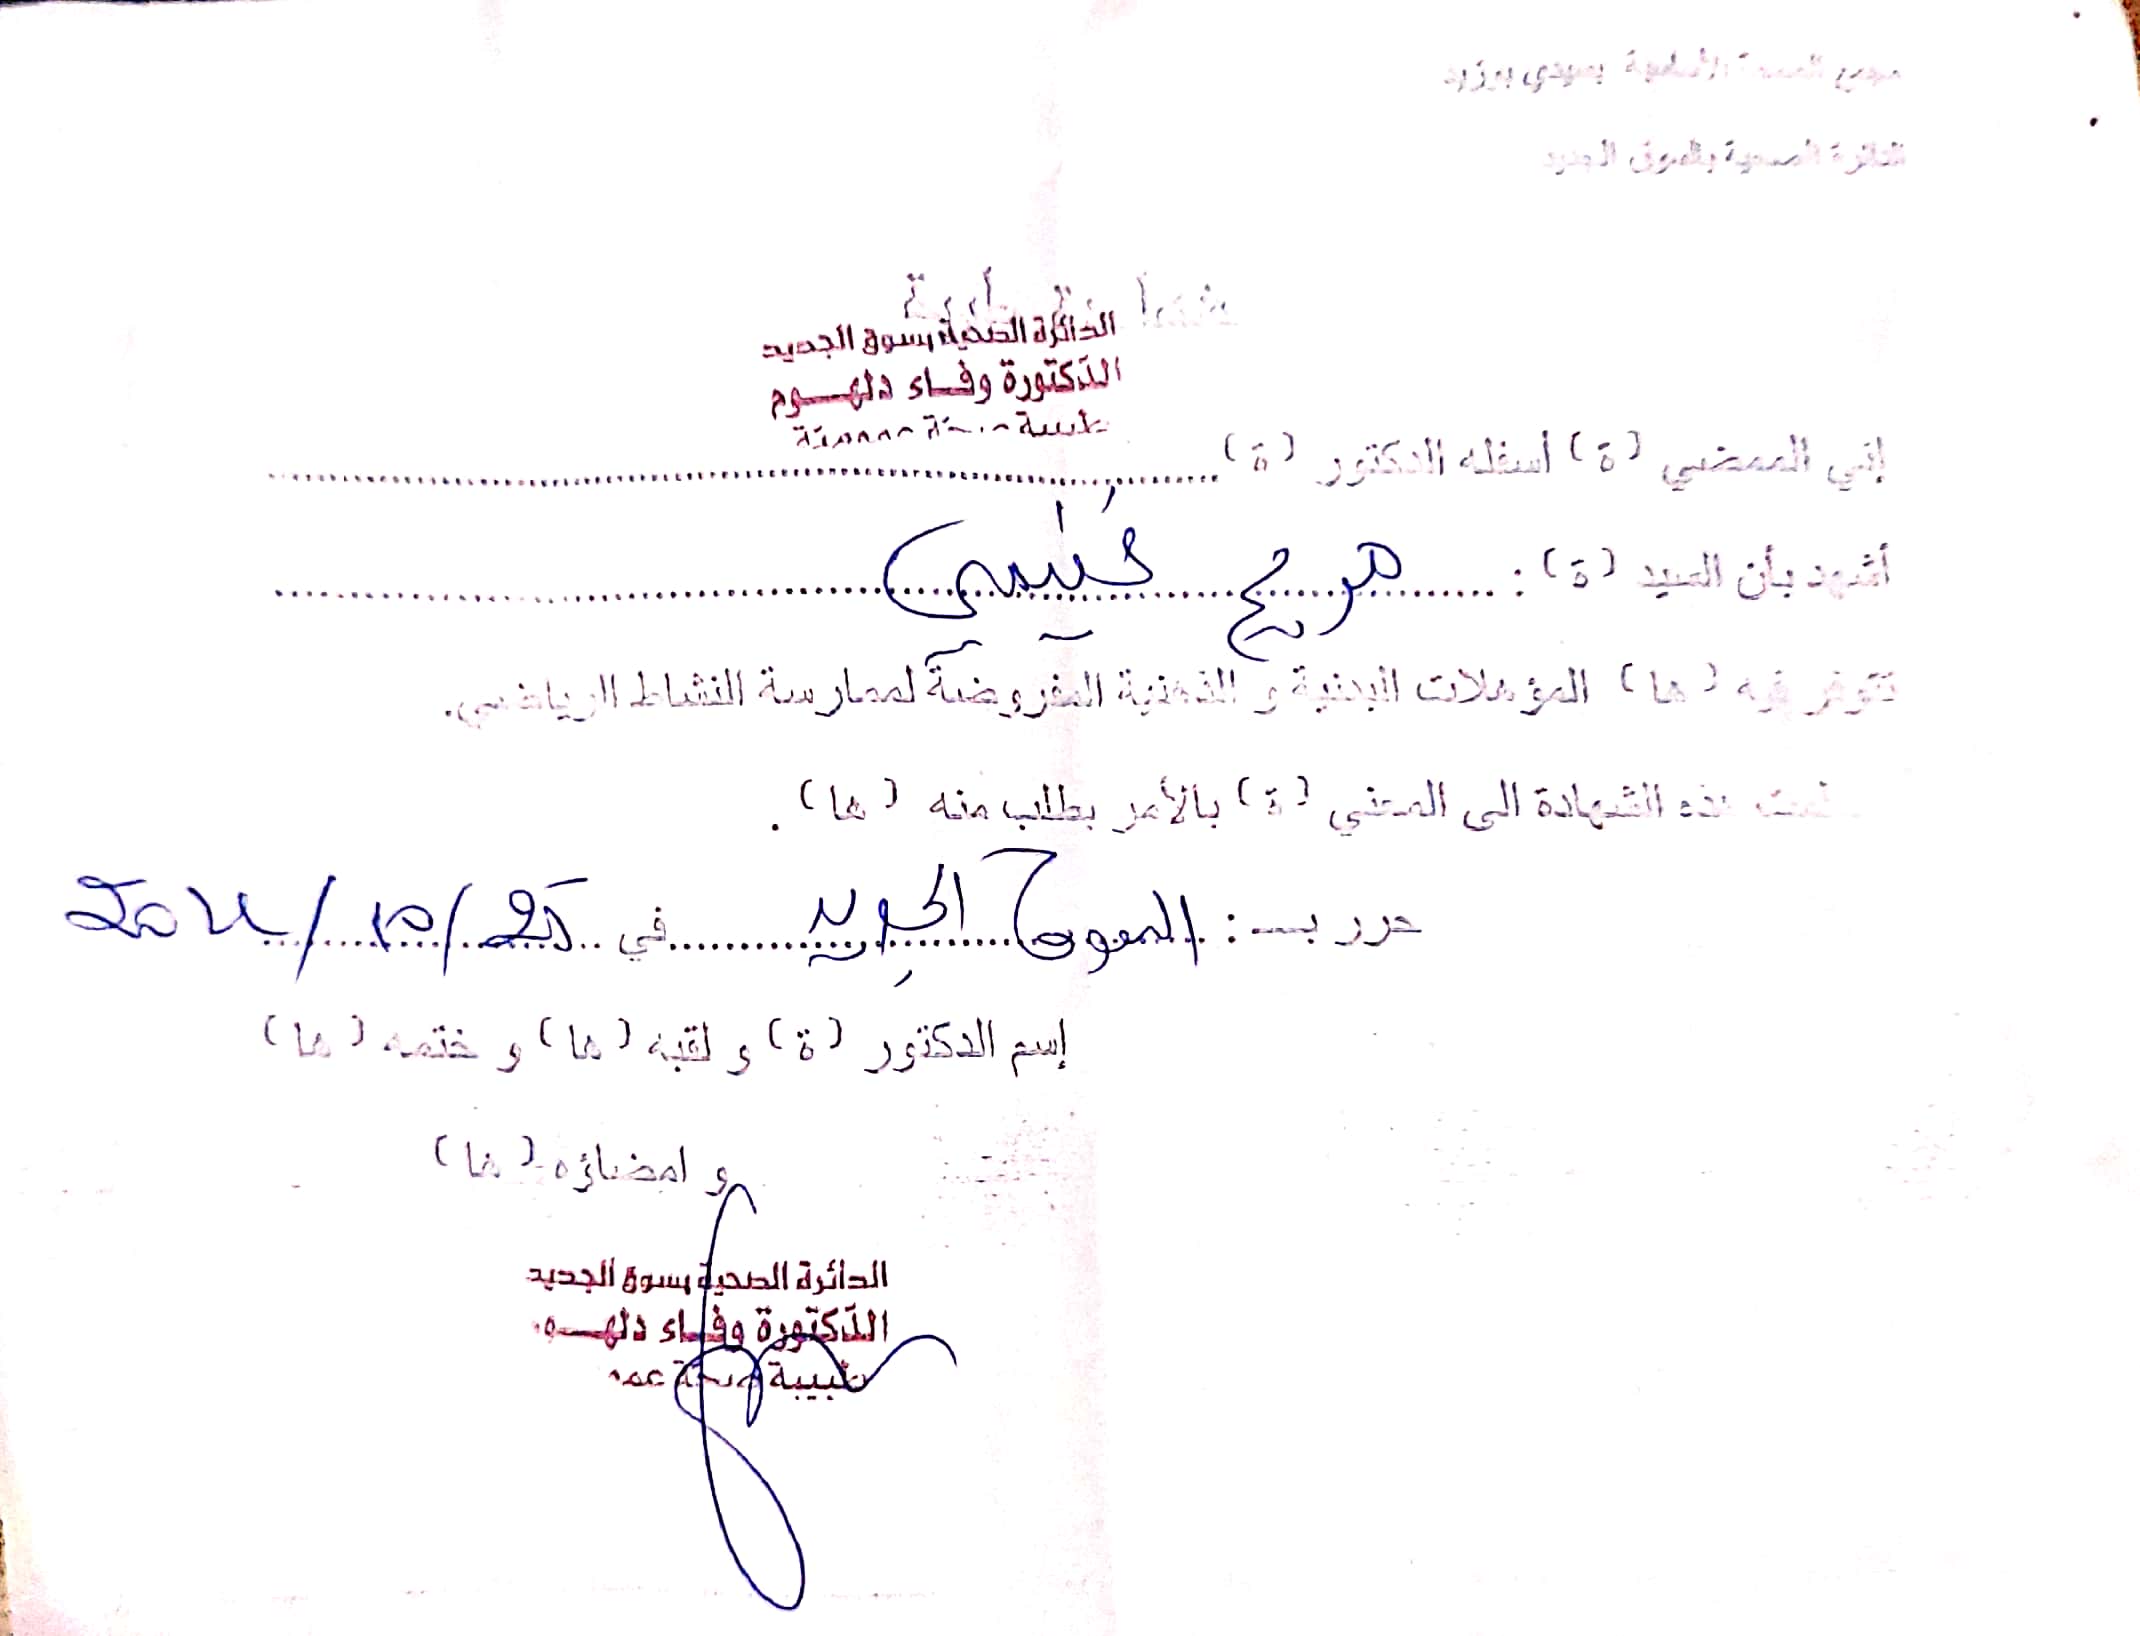 مجمع الصحة الأساسية بسيدي بوزيد
الدائرة الصحية بالسوق الجديد
شهادة طبية
الدائرة الصحية بسوق الجديد
الدّكتورة وفــاء دلهــوم
طبيبة صحة عمومية
إني الممضي (ة) أسفله الدكتور (ة)
أشهد بأن السيد (ة) :
تتوفر فيه (ها) المؤهلات البدنية و الذهنية المفروضة لممارسة النشاط الرياضي.
هذه الشهادة الى المعني (ة) بالأمر بطلب منه (ها) .
حرر بـــ : السوق الجديد في 25/10/2024
إسم الدكتور (ة) و لقبه (ها) و ختمه (ها)
و امضاؤه (ها)
الدائرة الصحية بسوق الجديد
الدّكتورة وفــاء
طبيبة صحة